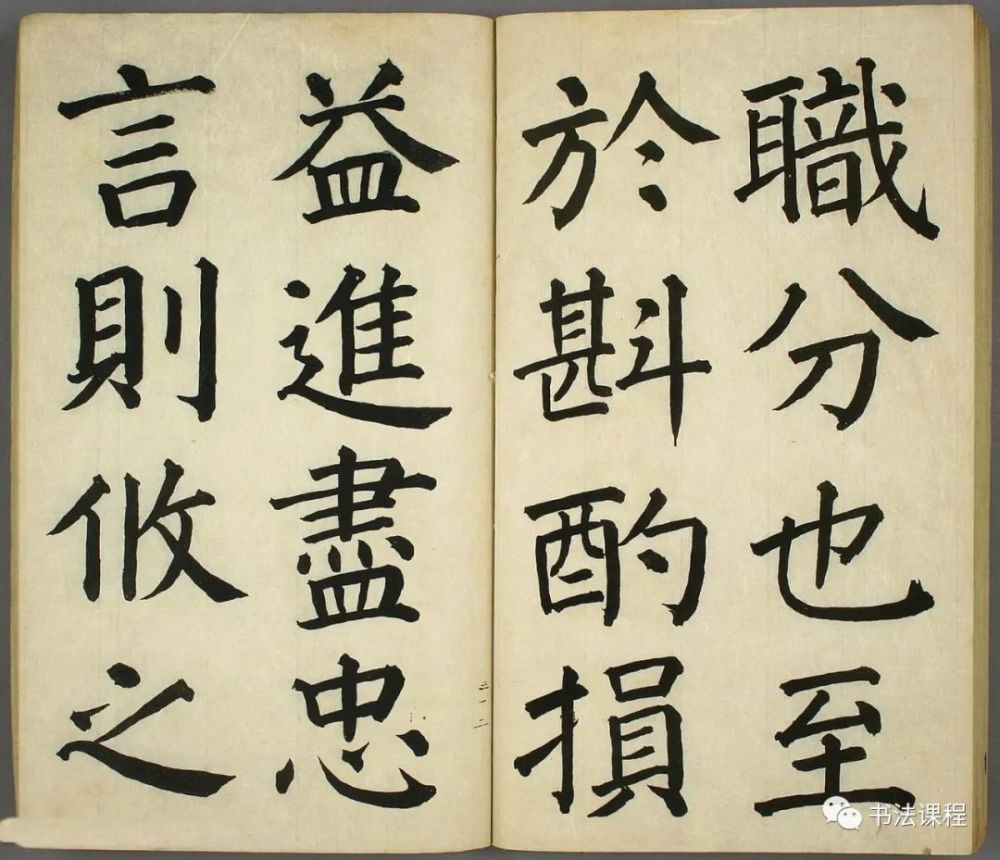 職分也至
於斟酌損
益進盡忠
言則攸之
书法课程